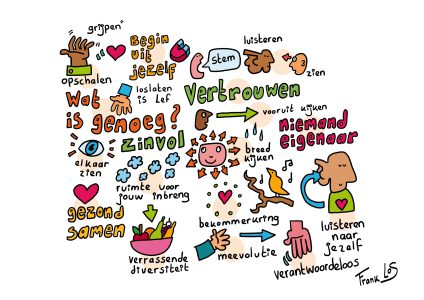 "grijpen"
Begin
uit
jezelf
opschalen
loslaten
is lef
stem
luisteren
zien
Vertrouwen
Wat
is genoeg?
vooruit kijken
niemand
eigenaar
zinvol
elkaar
zien
breed
kijken
ruimte voor
jouw inbreng
gezond
samen
bekommerkring
luisteren
naar
jezelf
verrassende
diversiteit
meevolutie
verantwoordeloos
Frank Los